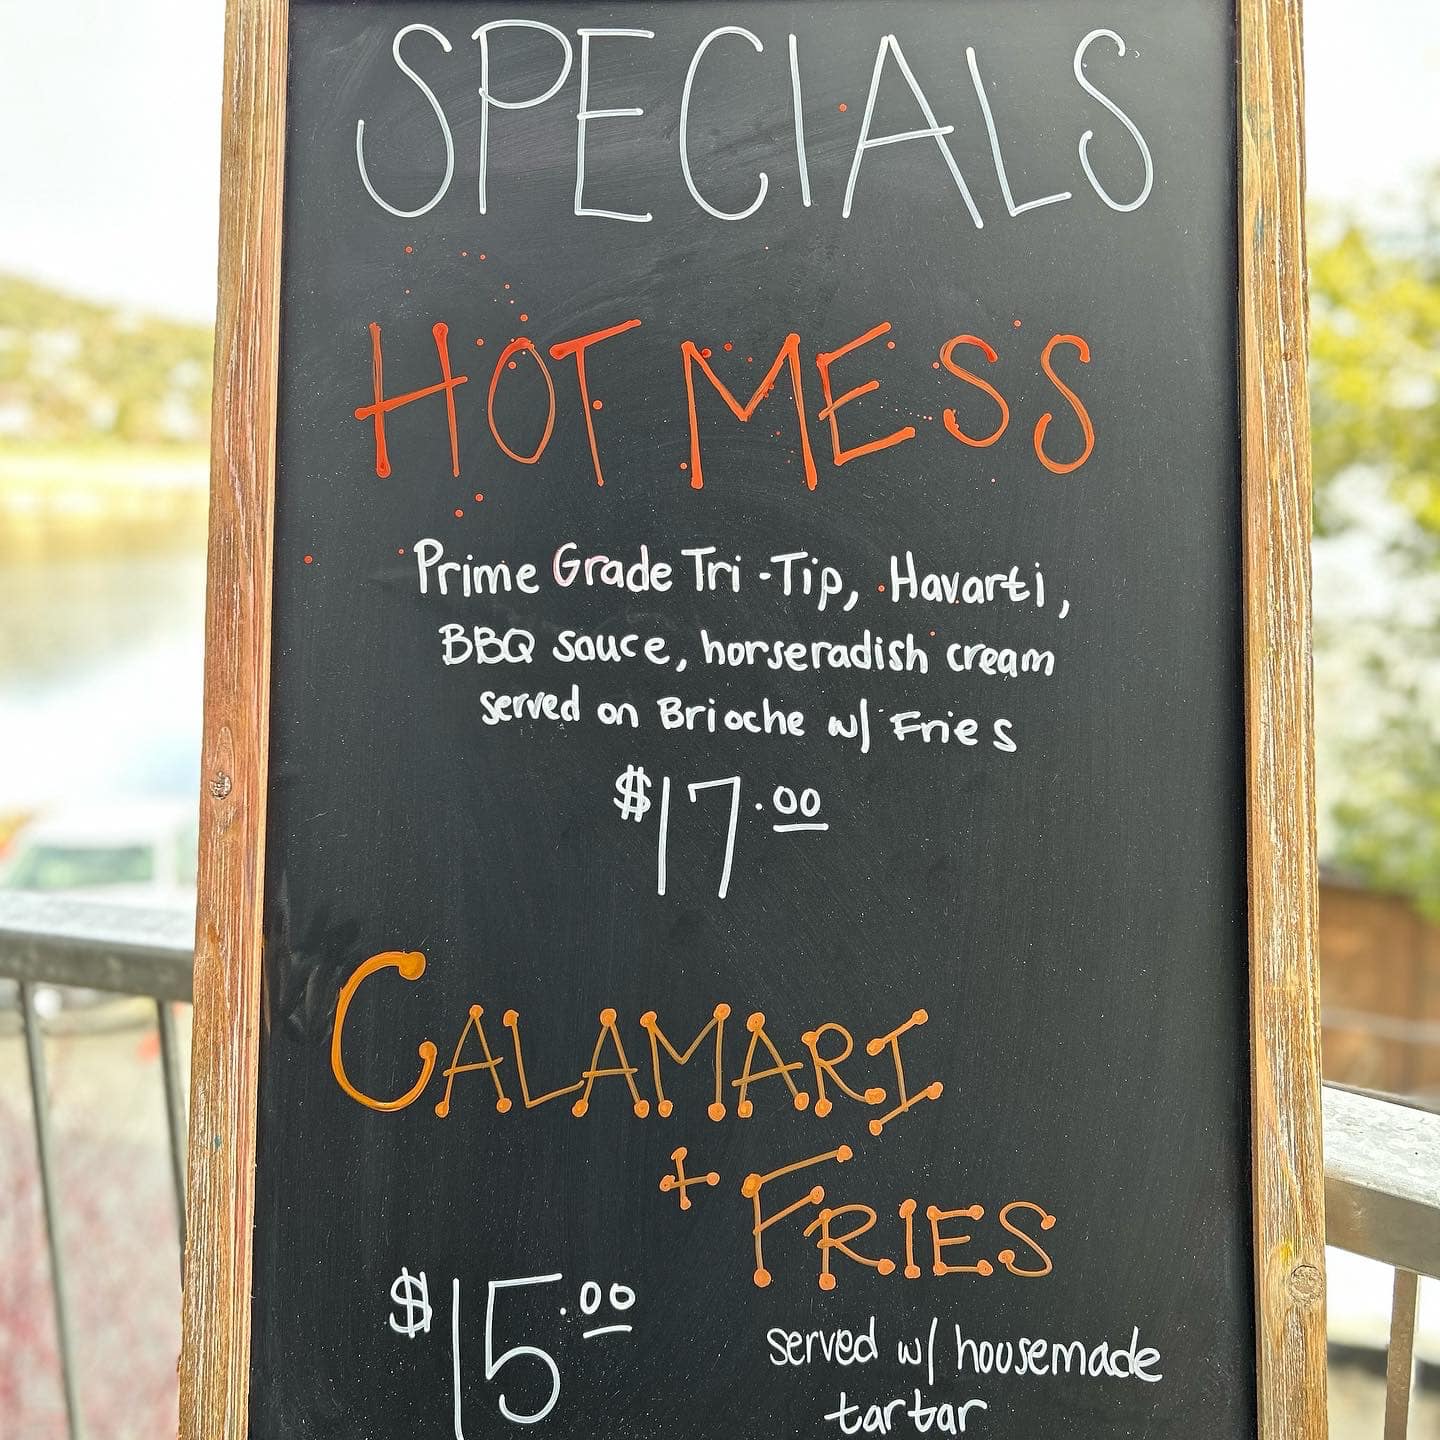 SPECIALS
HOT MESS
Prime Grade Tri-Tip, Havarti,
BBQ sauce, horseradish cream
served on Brioche w/ Fries
$17.00
CALAMARI
+ FRIES
$15.00
served w/ housemade
tartar